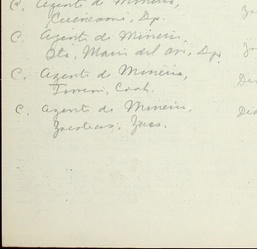 C. Agente de Minería,
Cuencamé, Dgo.
C. Agente de Minería,
Sta. María del Oro, Dgo.
C. Agente de Minería,
Torreón, Coah.
C. Agente de Minería,
Zacatecas, Zacs.